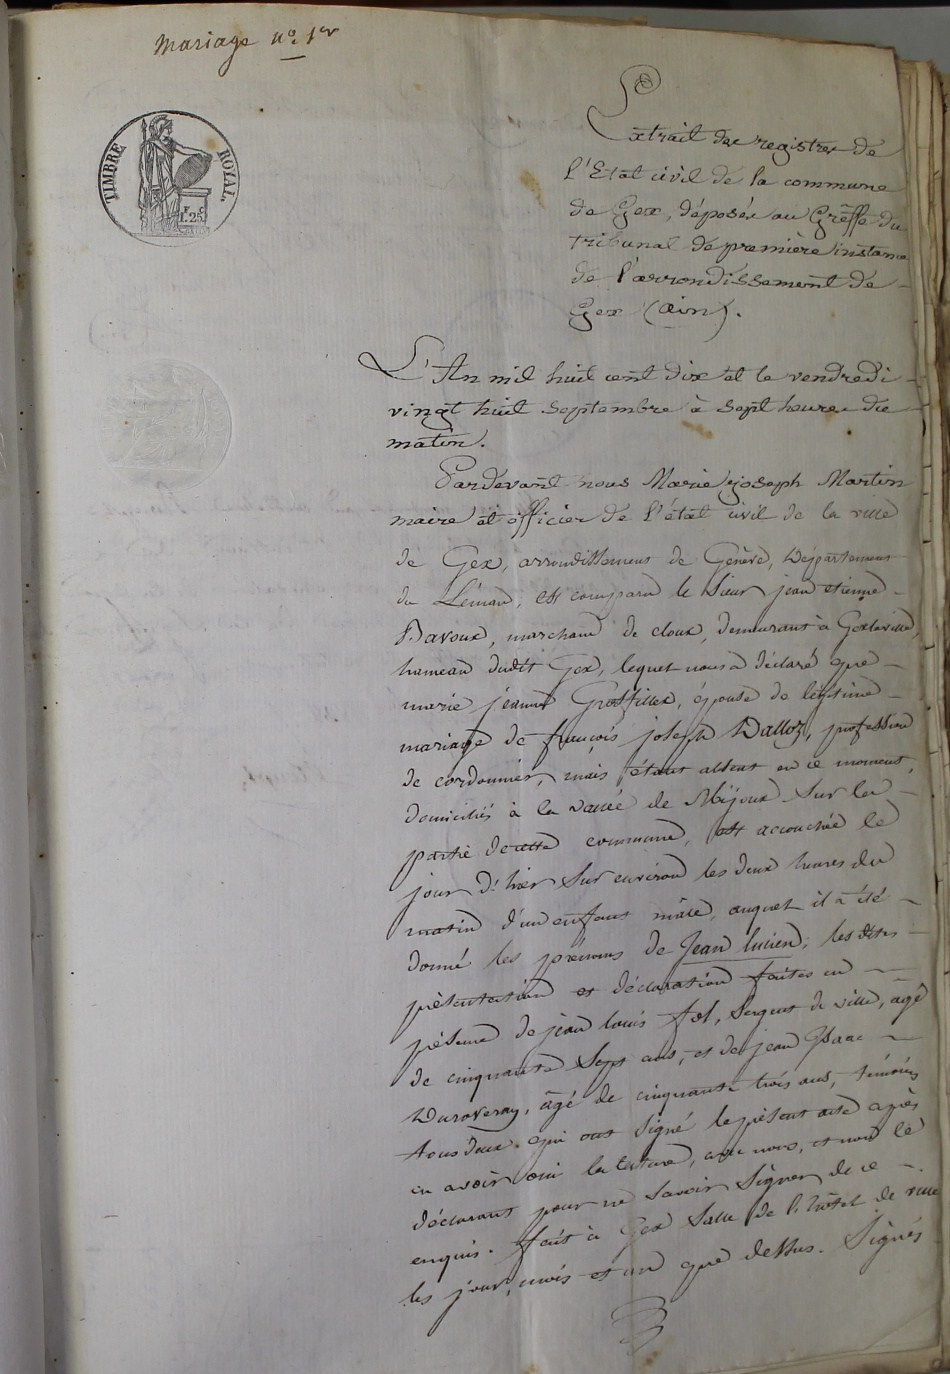 Mariage n° 1er
TIMBRE ROYAL
1F. 25C
Extrait des registres de
l'Etat civil de la commune
de Gex, déposés au Grêffe du
tribunal de première instance
de l'arrondissement de
Gex (ain).
L'An mil huit cent dix et le vendredi
vingt huit septembre à sept heures du
matin.
Pardevant nous Marie joseph Martin
maire et officier de l'état civil de la ville
de Gex, arrondissement de Genève, Département
du Léman, est comparu le sieur jean etienne
Davoux, marchand de cloux, demeurant à Gexlaville
hameau dudit Gex, lequel nous a déclaré que
marie jeanne Grosfillex, épouse de légitime
mariage de françois joseph Dalloz, profession
de cordonnier, mais étant absent en ce moment,
domiciliés à la vallée de Mijoux sur la
partie de cette commune, est accouchée le
jour d'hier sur environ les deux heures du
matin d'un enfant mâle, auquel il a été
donné les prénoms de Jean lucien; les dites
présentation et déclaration faites en
présence de jean louis fol, sergent de ville, âgé
de cinquante sept ans, et de jean Isaac
Duroveray, âgé de cinquante trois ans, témoins
tous deux qui ont signé le présent acte après
en avoir oui la lecture, avec nous, et non le
déclarant pour ne savoir signer de ce
enquis. fait à Gex salle de l'hôtel de ville
les jour, mois et an que dessus. Signés